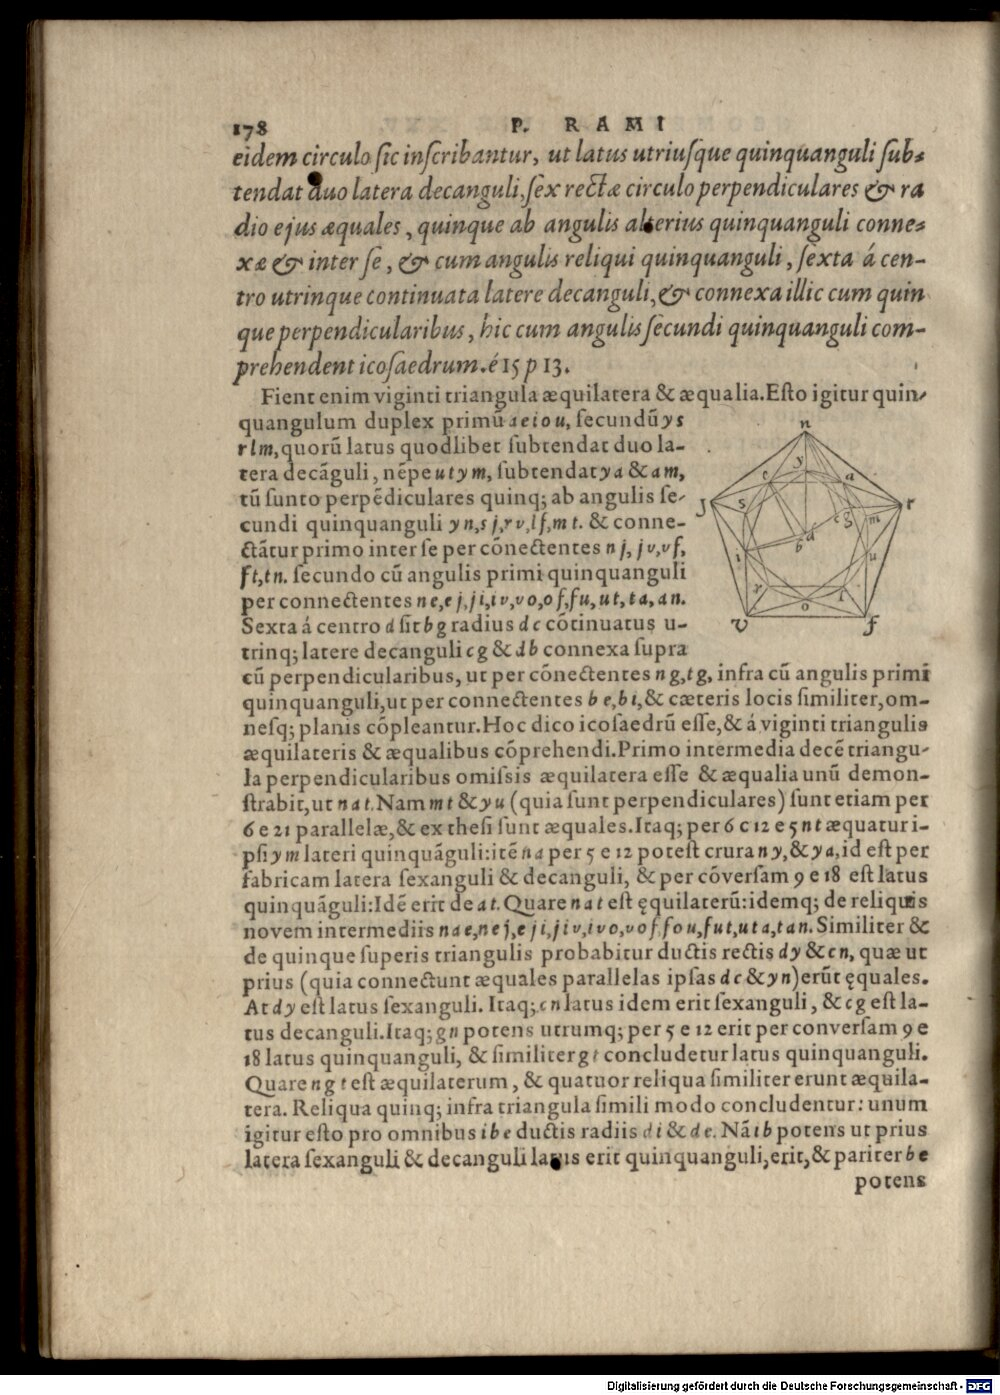 178 P. RAMI
eidem circulo sic inscribantur, ut latus utriusque quinquanguli sub-
tendat duo latera decanguli, sex rectæ circulo perpendiculares & ra
dio ejus æquales, quinque ab angulis alterius quinquanguli conne-
xæ & inter se, & cum angulis reliqui quinquanguli, sexta á cen-
tro utrinque continuata latere decanguli, & connexa illic cum quin
que perpendicularibus, hic cum angulis secundi quinquanguli com-
prehendent icosaedrum. é 15 p 13.
Fient enim viginti triangula æquilatera & æqualia. Esto igitur quin-
quangulum duplex primũ a e i o u, secundũ y s
r l m, quorũ latus quodlibet subtendat duo la-
tera decãguli, nẽpe u t y m, subtendat y a & a m,
tũ sunto perpẽdiculares quinq; ab angulis se-
cundi quinquanguli y n, s j, r v, l f, m t. & conne-
ctãtur primo inter se per cõnectentes n j, j v, v f,
f t, t n. secundo cũ angulis primi quinquanguli
per connectentes n e, e j, j i, i v, v o, o f, f u, u t, t a, a n.
Sexta á centro d sit b g radius d c cõtinuatus u-
trinq; latere decanguli c g & d b connexa supra
cũ perpendicularibus, ut per cõnectentes n g, t g, infra cũ angulis primi
quinquanguli, ut per connectentes b e, b i, & cæteris locis similiter, om-
nesq; planis cõpleantur. Hoc dico icosaedrũ esse, & á viginti triangulis
æquilateris & æqualibus cõprehendi. Primo intermedia decẽ triangu-
la perpendicularibus omissis æquilatera esse & æqualia unũ demon-
strabit, ut n a t. Nam m t & y u (quia sunt perpendiculares) sunt etiam per
6 e 21 parallelæ, & ex thesi sunt æquales. Itaq; per 6 c 12 e 5 n t æquatur i-
psi y m lateri quinquãguli: itẽ n a per 5 e 12 potest crura n y, & y a, id est per
fabricam latera sexanguli & decanguli, & per cõversam 9 e 18 est latus
quinquãguli: Idẽ erit de a t. Quare n a t est ęquilaterũ: idemq; de reliquis
novem intermediis n a e, n e j, e j i, j i v, i v o, v o f, f o u, f u t, u t a, t a n. Similiter &
de quinque superis triangulis probabitur ductis rectis d y & c n, quæ ut
prius (quia connectunt æquales parallelas ipsas d c & y n) erũt ęquales.
At d y est latus sexanguli. Itaq; c n latus idem erit sexanguli, & c g est la-
tus decanguli. Itaq; g n potens utrumq; per 5 e 12 erit per conversam 9 e
18 latus quinquanguli, & similiter g t concludetur latus quinquanguli.
Quare n g t est æquilaterum, & quatuor reliqua similiter erunt æquila-
tera. Reliqua quinq; infra triangula simili modo concludentur: unum
igitur esto pro omnibus i b e ductis radiis d i & d e. Nã i b potens ut prius
latera sexanguli & decanguli latus erit quinquanguli, erit, & pariter b e
potens
n
y
e
a
j
s
c
g
m
r
d
b
i
u
r
l
o
v
f
Digitalisierung gefördert durch die Deutsche Forschungsgemeinschaft - DFG